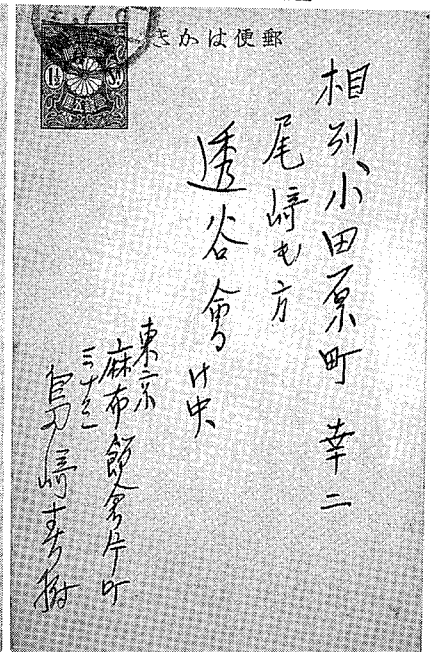 郵便はかき
相州小田原町 幸二
尾崎氏方
透谷會御中
東京
麻布飯倉片町
三十三
島崎春樹